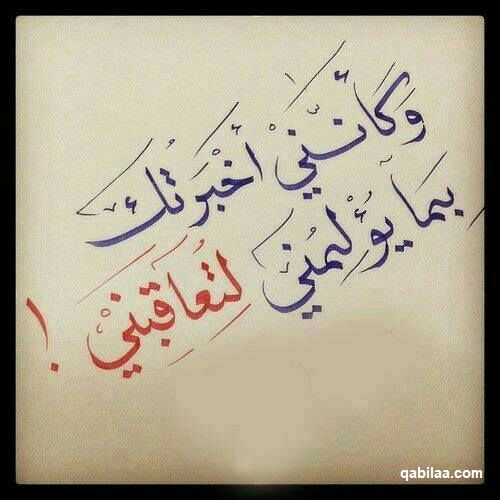 وَكأنّنيْ أخْبَرتُك
بِما يُؤْلِمُنيْ لِتُعاقِبَنيْ !
qabilaa.com